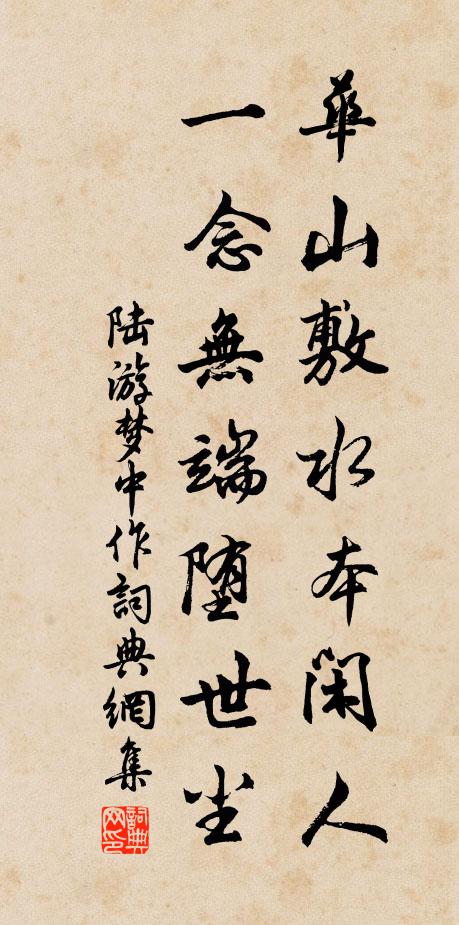 華山敷水本閑人
一念無端堕世尘
陆游梦中作詞典網集
詞典网印